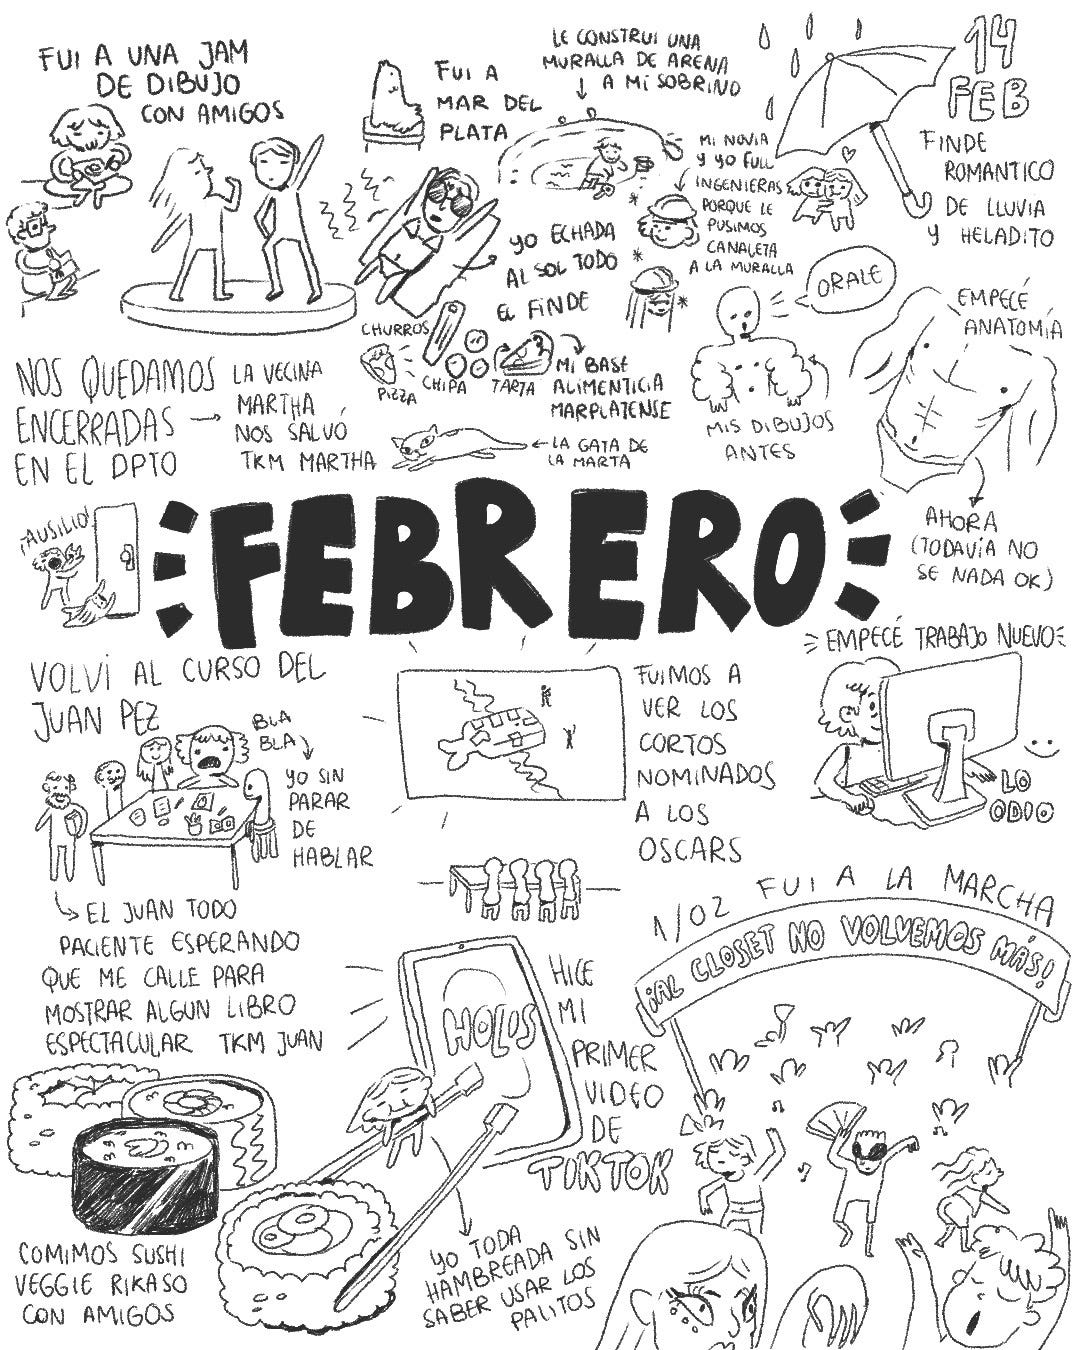 FUI A UNA JAM
DE DIBUJO
CON AMIGOS
FUI A
MAR DEL
PLATA
LE CONSTRUI UNA
MURALLA DE ARENA
A MI SOBRINO
MI NOVIA
Y YO FULL
INGENIERAS
PORQUE LE
PUSIMOS
CANALETA
A LA MURALLA
YO ECHADA
AL SOL TODO
EL FINDE
CHURROS
PIZZA
CHIPA
TARTA
MI BASE
ALIMENTICIA
MARPLATENSE
14
FEB
FINDE
ROMANTICO
DE LLUVIA
Y HELADITO
ORALE
EMPECÉ
ANATOMÍA
MIS DIBUJOS
ANTES
AHORA
(TODAVÍA NO
SE NADA OK)
NOS QUEDAMOS
ENCERRADAS
EN EL DPTO
LA VECINA
MARTHA
NOS SALVÓ
TKM MARTHA
LA GATA DE
LA MARTA
¡AUSILIO!
FEBRERO
VOLVÍ AL CURSO DEL
JUAN PEZ
BLA
BLA
YO SIN
PARAR
DE
HABLAR
EL JUAN TODO
PACIENTE ESPERANDO
QUE ME CALLE PARA
MOSTRAR ALGUN LIBRO
ESPECTACULAR TKM JUAN
FUIMOS A
VER LOS
CORTOS
NOMINADOS
A LOS
OSCARS
EMPECÉ TRABAJO NUEVO
LO
ODIO
1/02 FUI A LA MARCHA
¡AL CLOSET NO VOLVEMOS MÁS!
HOLIS
HICE
MI
PRIMER
VIDEO
DE
TIKTOK
COMIMOS SUSHI
VEGGIE RIKASO
CON AMIGOS
YO TODA
HAMBREADA SIN
SABER USAR LOS
PALITOS